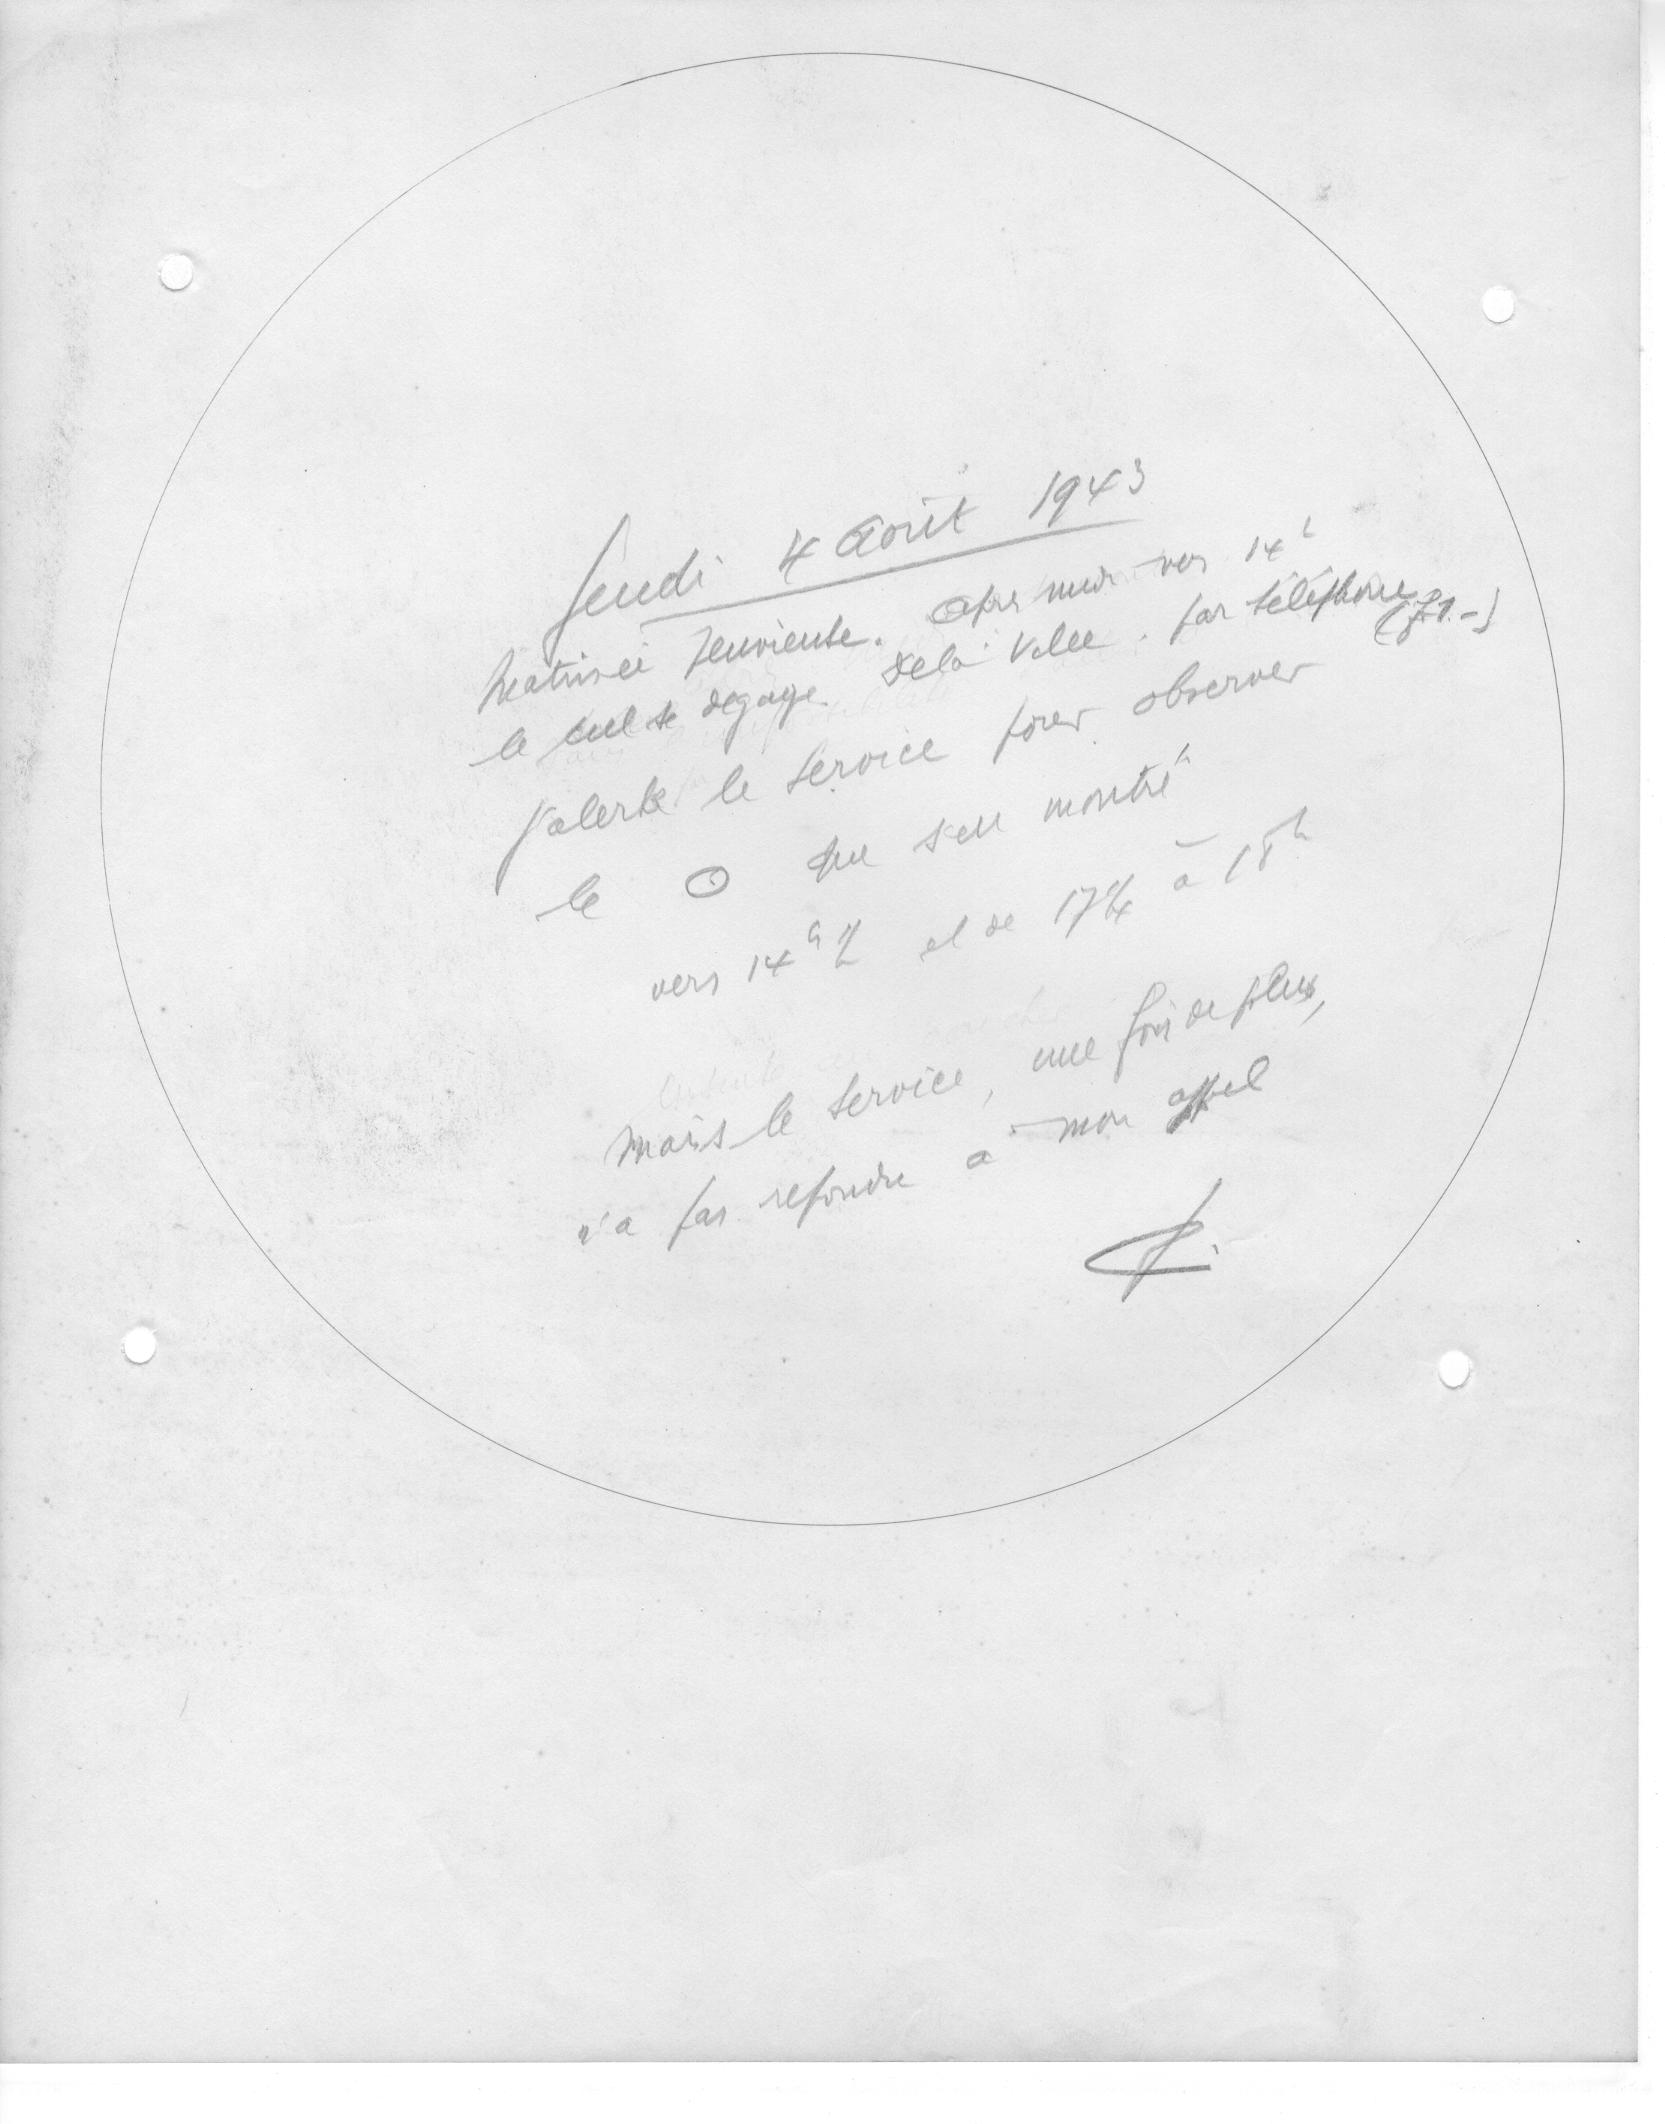 Jeudi 4 Août 1943
Matinée pluvieuse. Après midi vers 14h
le ciel se dégage. De la ville par téléphone
j'alerte le service pour observer
le ⊙ qui s'est montré
vers 14h ½ et de 17¼ à 18h
Mais le service, une fois de plus,
n'a pas repondu à mon appel